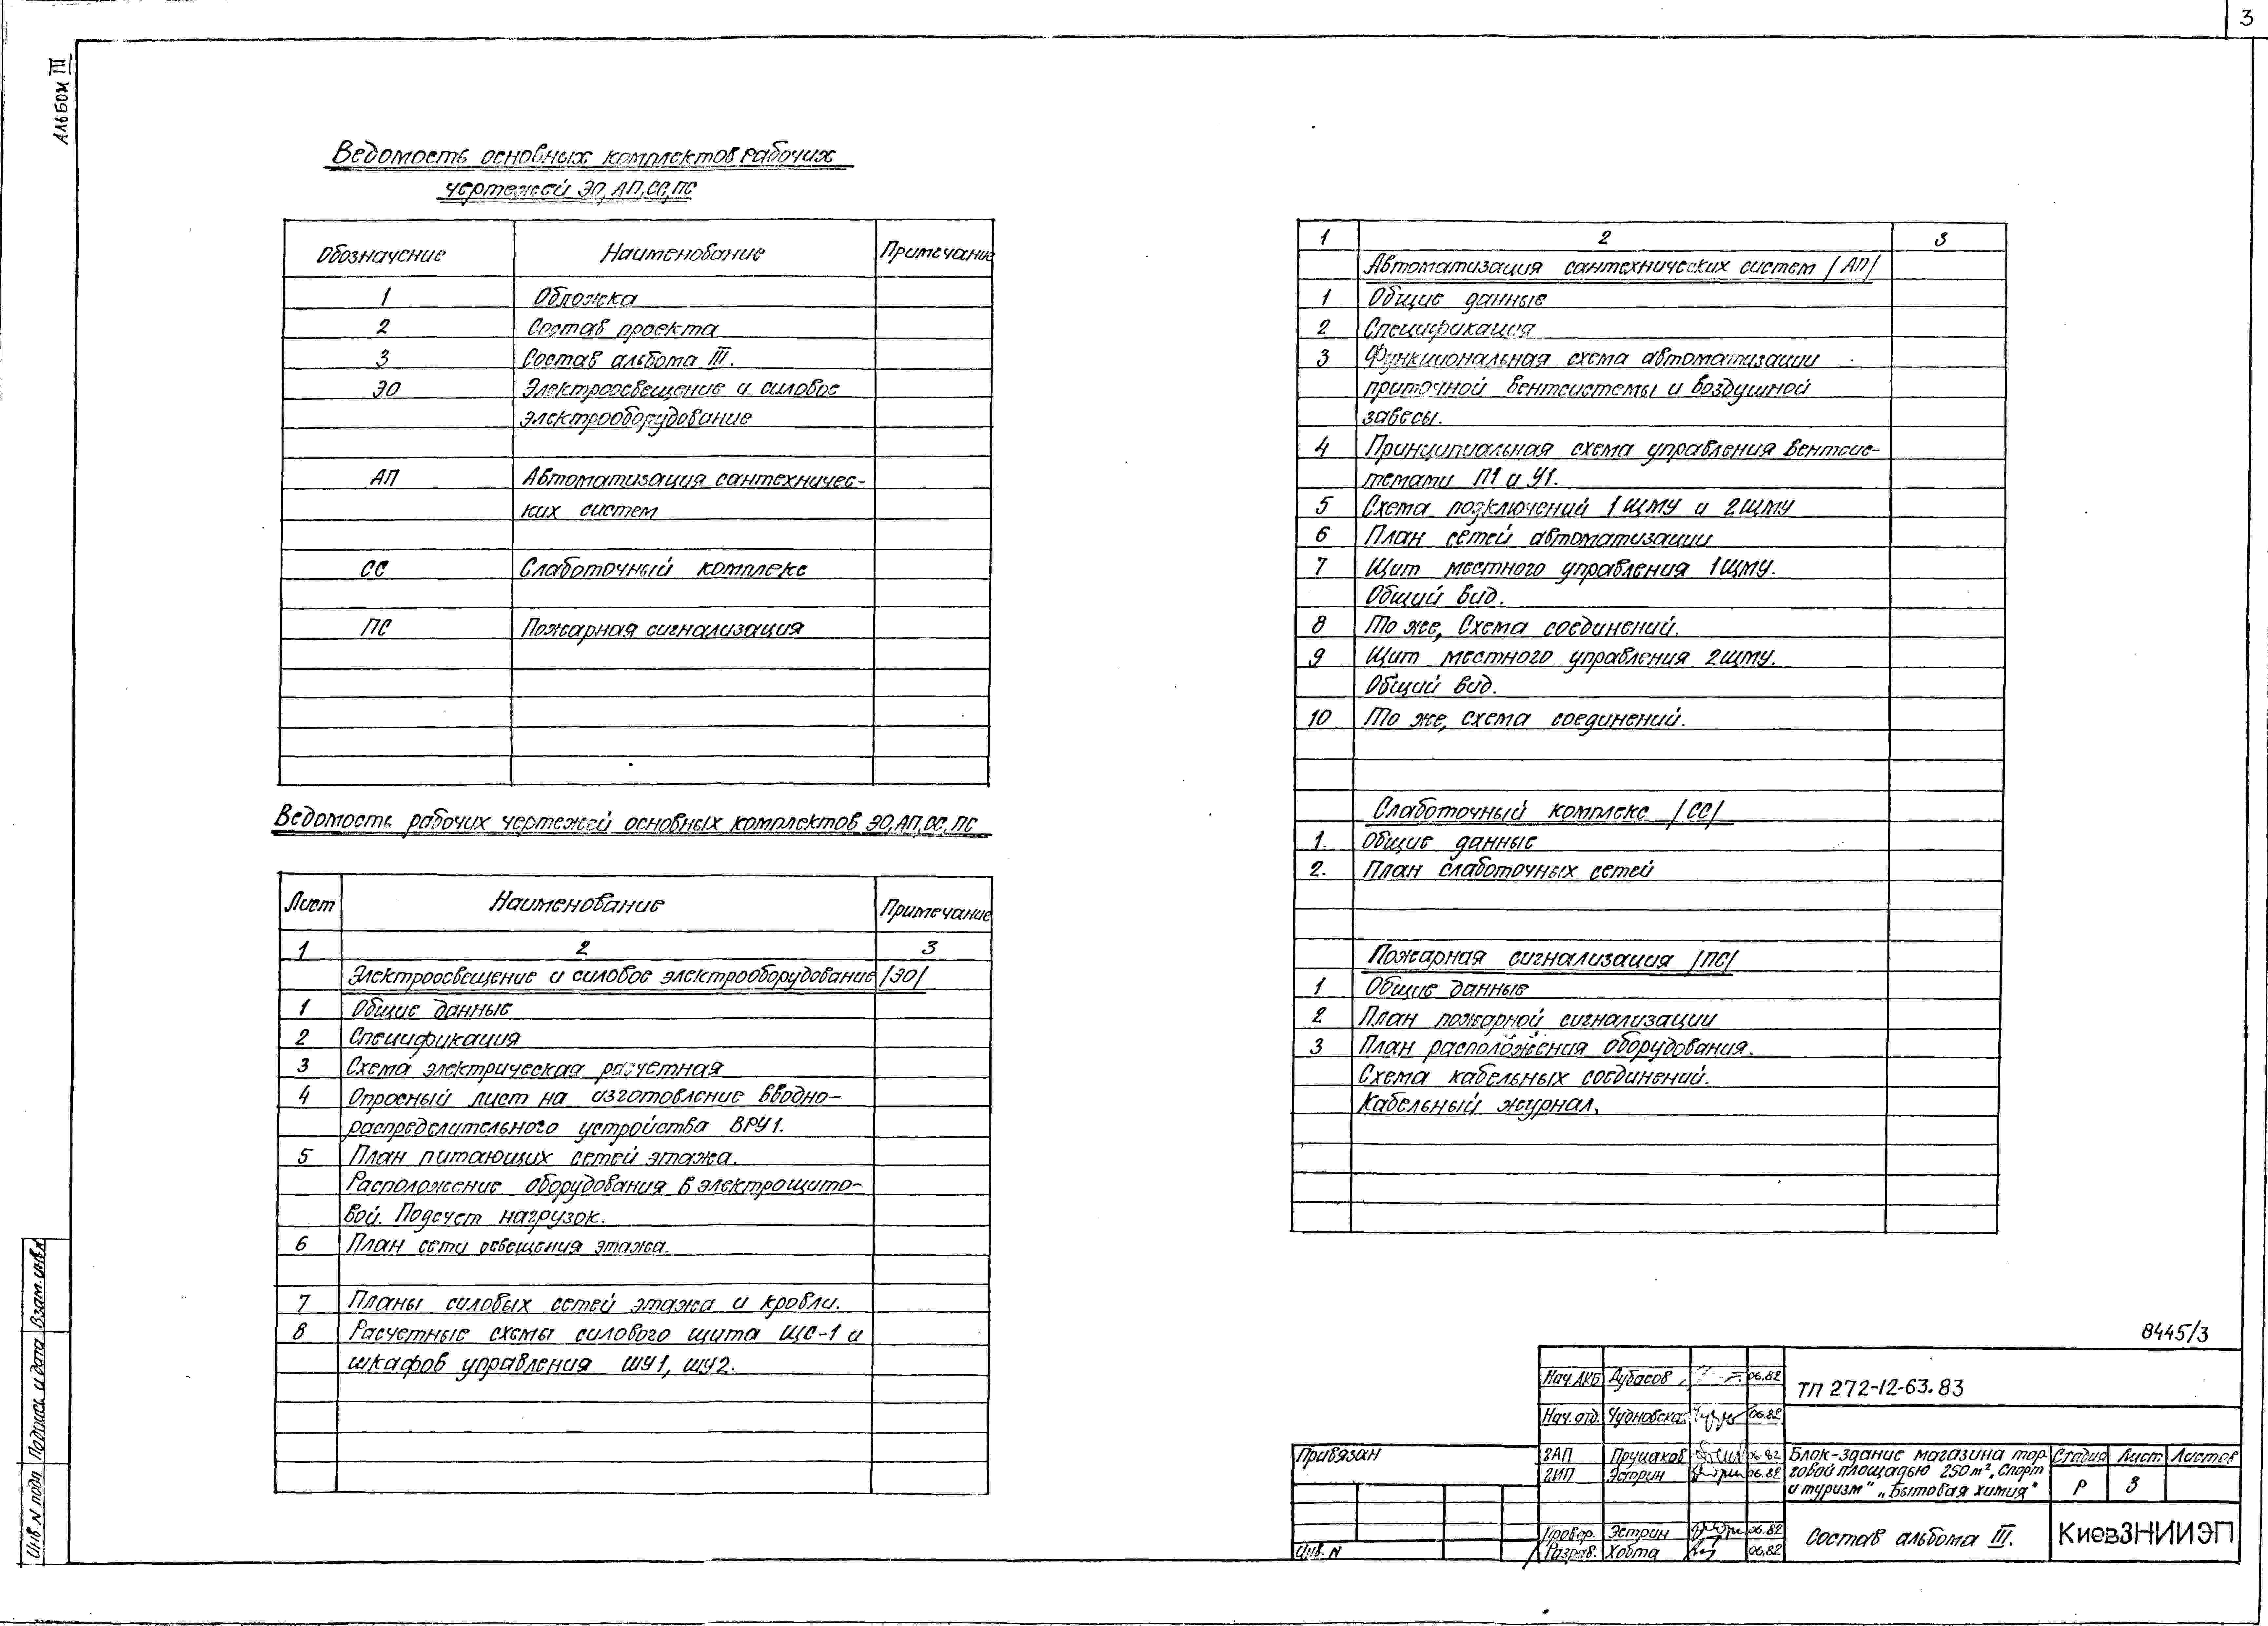 3
Альбом III
Ведомость основных комплектов рабочих
чертежей ЭО, АП, СС, ПС
Обозначение Наименование Примечание
1 Обложка
2 Состав проекта
3 Состав альбома III.
ЭО Электроосвещение и силовое
электрооборудование
АП Автоматизация сантехничес-
ких систем
СС Слаботочный комплекс
ПС Пожарная сигнализация
Ведомость рабочих чертежей основных комплектов ЭО, АП, СС, ПС
Лист Наименование Примечание
1 2 3
Электроосвещение и силовое электрооборудование /ЭО/
1 Общие данные
2 Спецификация
3 Схема электрическая расчетная
4 Опросный лист на изготовление вводно-
распределительного устройства ВРУ1.
5 План питающих сетей этажа.
Расположение оборудования в электрощито-
вой. Подсчет нагрузок.
6 План сети освещения этажа.
7 Планы силовых сетей этажа и кровли.
8 Расчетные схемы силового щита ЩС-1 и
шкафов управления ШУ1, ШУ2.
1 2 3
Автоматизация сантехнических систем /АП/
1 Общие данные
2 Спецификация
3 Функциональная схема автоматизации
приточной вентсистемы и воздушной
завесы.
4 Принципиальная схема управления вентсис-
темами П1 и У1.
5 Схема подключений 1ЩМУ и 2ЩМУ
6 План сетей автоматизации
7 Щит местного управления 1ЩМУ.
Общий вид.
8 То же, Схема соединений.
9 Щит местного управления 2ЩМУ.
Общий вид.
10 То же, схема соединений.
Слаботочный комплекс /СС/
1. Общие данные
2. План слаботочных сетей
Пожарная сигнализация /ПС/
1 Общие данные
2 План пожарной сигнализации
3 План расположения оборудования.
Схема кабельных соединений.
Кабельный журнал.
8445/3
Нач. АКБ Дубасов 06.82
Нач. отд. Чудновская 06.82
ГАП Прушаков 06.82
ГИП Эстрин 06.82
Провер. Эстрин 06.82
Разраб. Хобта 06.82
ТП 272-12-63.83
Блок-здание магазина тор-
говой площадью 250 м², Спорт
и туризм" „Бытовая химия"
Стадия Лист Листов
Р 3
Состав альбома III.
КиевЗНИИЭП
Привязан
Инв. N
Инв N подл Подпись и дата Взам. инв N